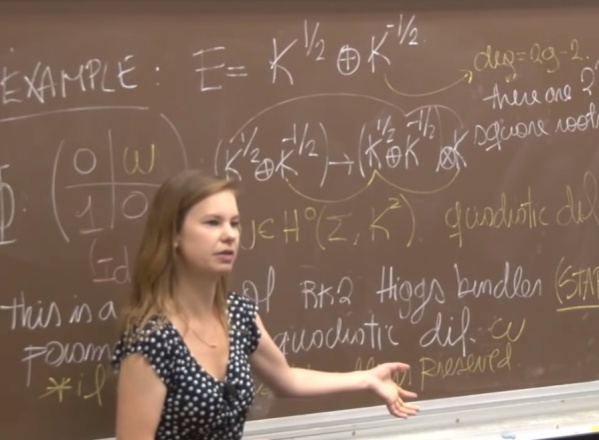 EXAMPLE: E = K^{1/2} ⊕ K^{-1/2}.
deg = 2g-2.
there are 2
square roots
Φ: (0 ω / 1 0) : (K^{1/2} ⊕ K^{-1/2}) → (K^{1/2} ⊕ K^{-1/2}) ⊗ K
∈ H⁰(Σ, K²). quadratic dif
this is a of RK2 Higgs bundles (STAB
quadratic dif. ω
*if preserved